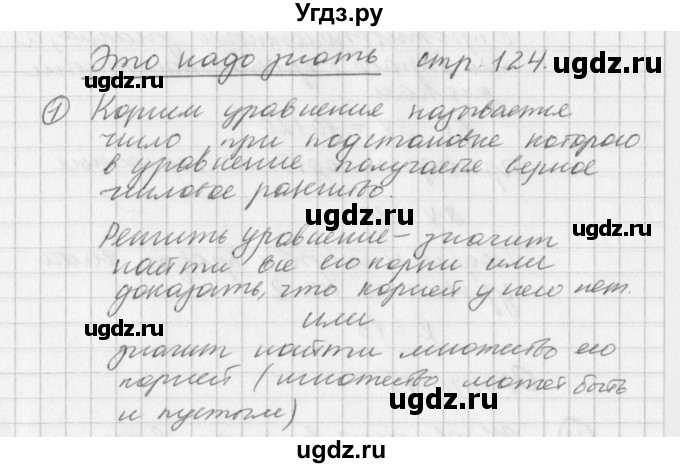 Угдз.ру
Это надо знать стр. 124.
① Корнем уравнения называется
число, при подстановке которого
в уравнение, получается верное
числовое равенство.
Решить уравнение – значит
найти все его корни или
доказать, что корней у него нет.
или
значит найти множество его
корней (множество может быть
и пустым)
ugdz.ru
ugdz.ru
ugdz.ru
ugdz.ru
ugdz.ru
ugdz.ru
ugdz.ru
ugdz.ru